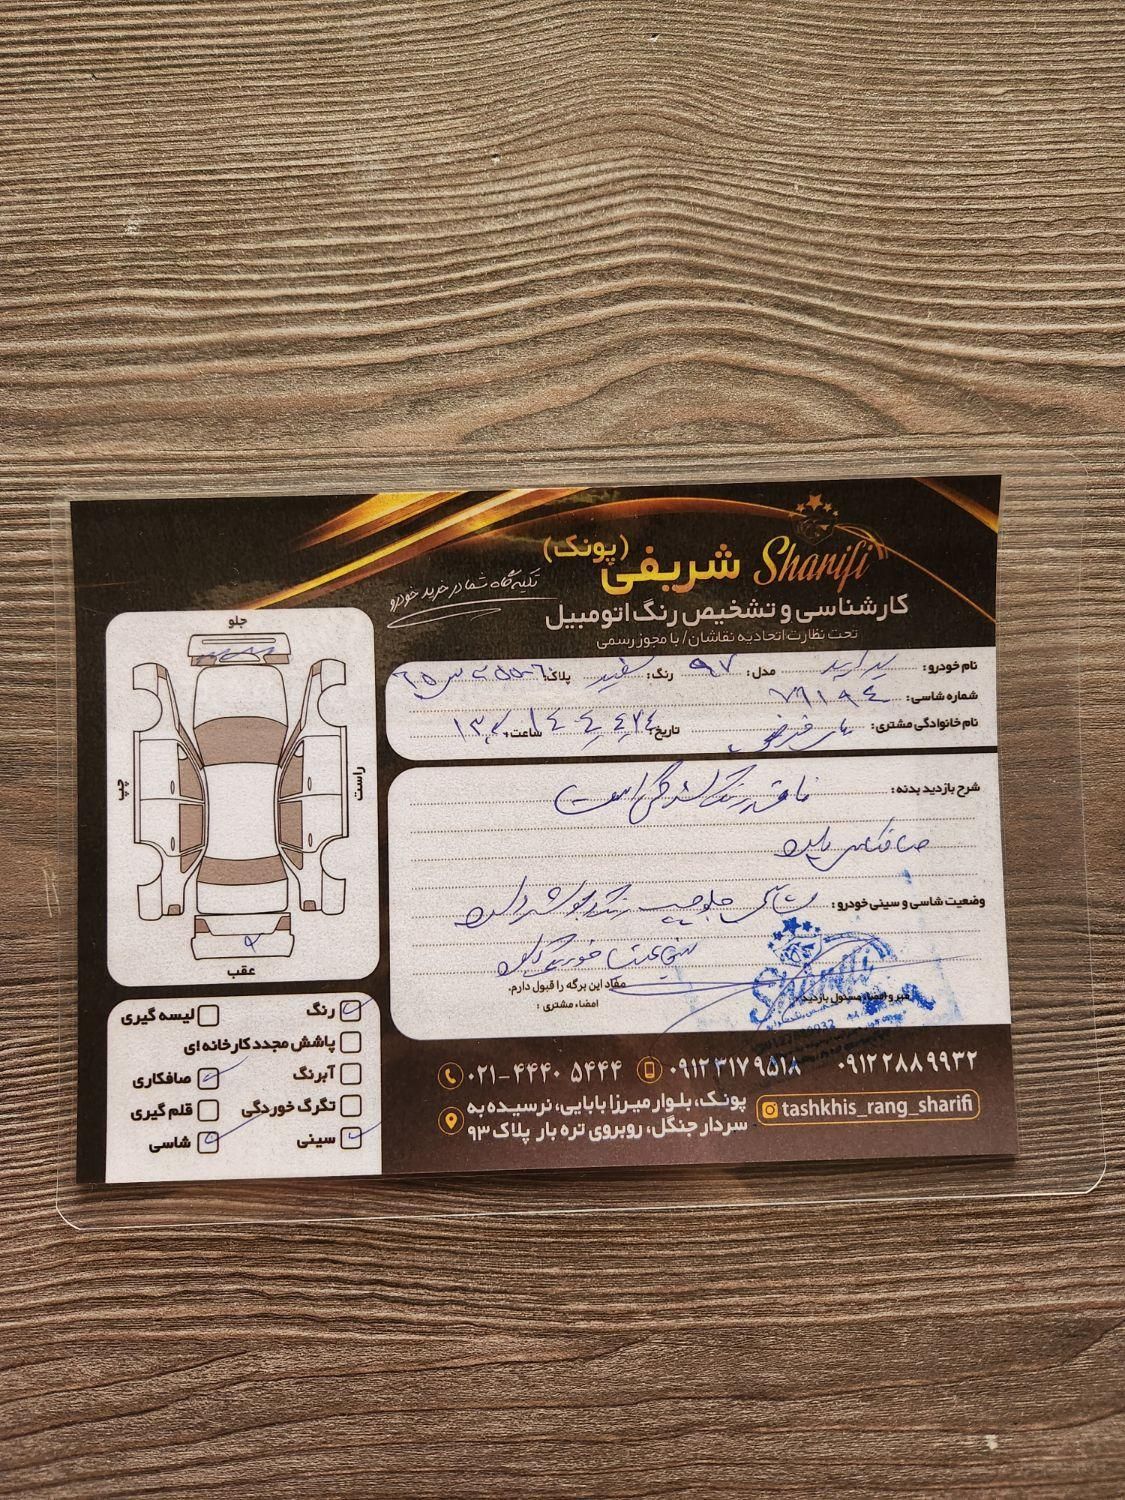 Sharifi شریفی (پونک)
تکیه گاه شما در خرید خودرو
کارشناسی و تشخیص رنگ اتومبیل
تحت نظارت اتحادیه نقاشان/ با مجوز رسمی
نام خودرو: پراید مدل: ۹۷ رنگ: سفید پلاک:
شماره شاسی: ۷۹۱۹۴
نام خانوادگی مشتری: تاریخ: ساعت:
شرح بازدید بدنه: فاقد رنگ
صافکاری
وضعیت شاسی و سینی خودرو: شاسی جلو چپ
سینی عقب
مفاد این برگه را قبول دارم.
امضاء مشتری:
مهر و امضاء مسئول بازدید:
جلو
چپ
راست
عقب
رنگ
لیسه گیری
پاشش مجدد کارخانه ای
آبرنگ
صافکاری
تگرگ خوردگی
قلم گیری
سینی
شاسی
۰۲۱-۴۴۴۰ ۵۴۴۴ ۰۹۱۲ ۳۱۷ ۹۵۱۸ ۰۹۱۲ ۲۸۸ ۹۹۳۲
پونک، بلوار میرزا بابایی، نرسیده به
سردار جنگل، روبروی تره بار پلاک ۹۳
tashkhis_rang_sharifi